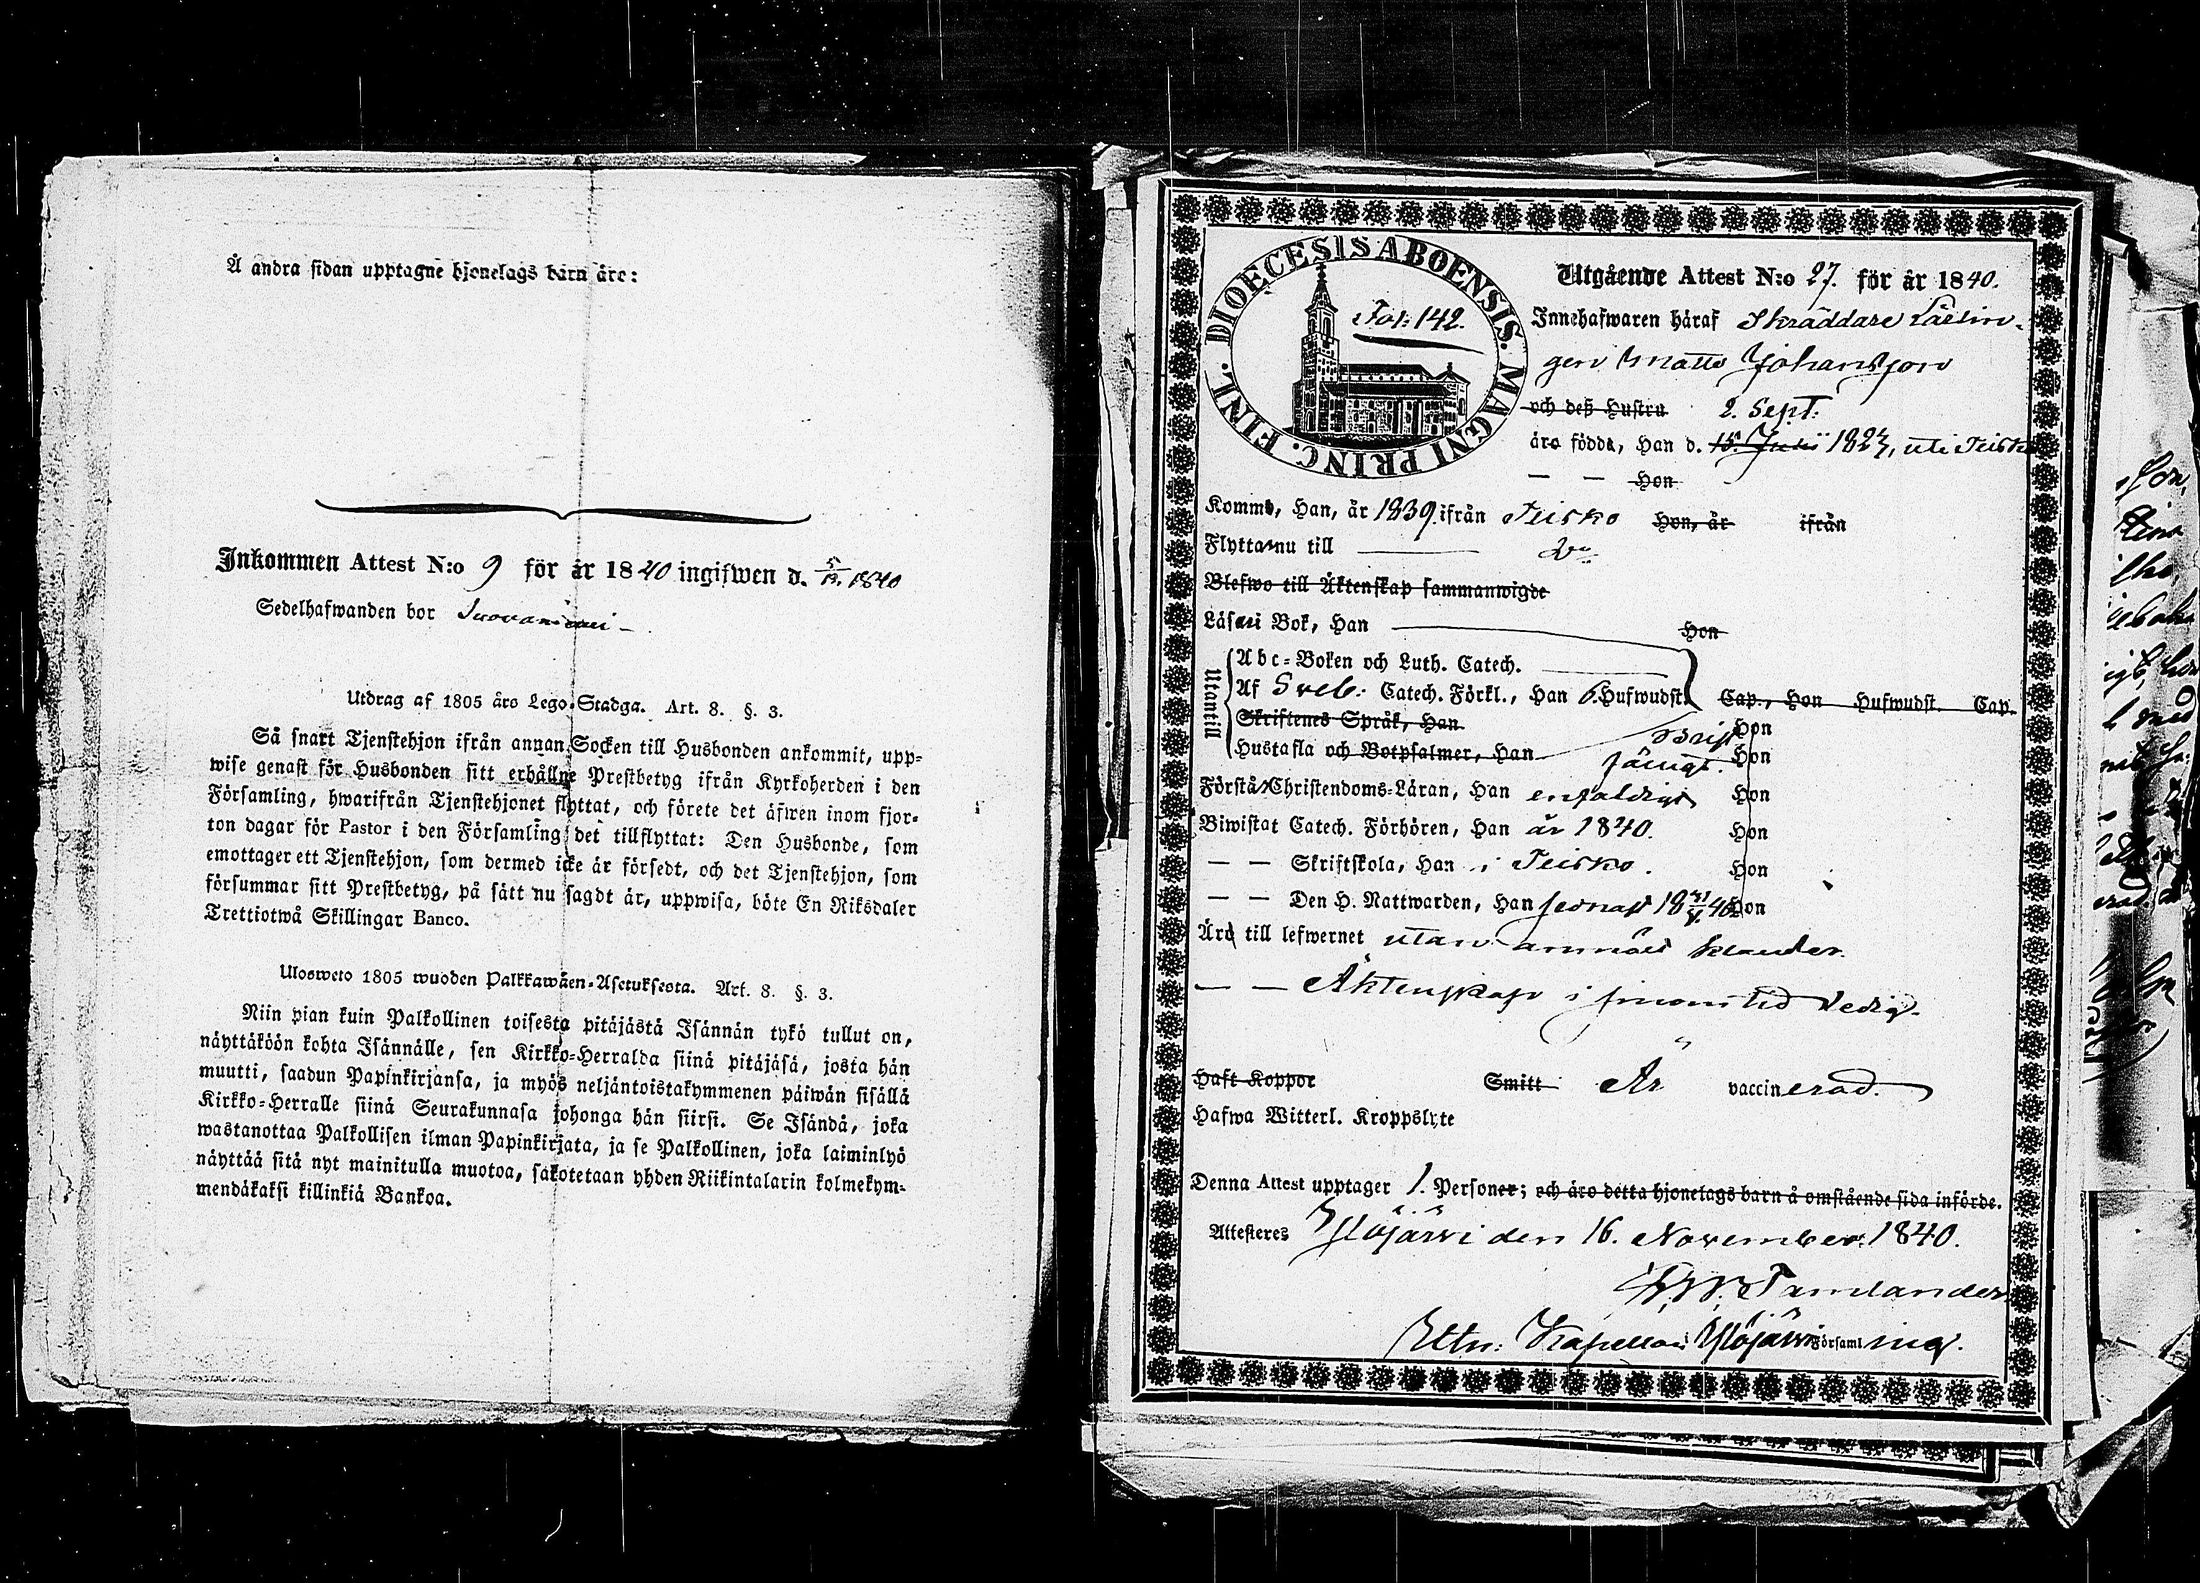 Å andra sidan upptagne hjonelags barn äro:
Inkommen Attest N:o 9 för år 1840 ingifwen d. 5/12 1840
Sedelhafwanden bor
Utdrag af 1805 års Lego-Stadga. Art. 8. §. 3.
Så snart Tjenstehjon ifrån annan Socken till Husbonden ankommit, upp-
wise genast för Husbonden sitt erhållne Prestbetyg ifrån Kyrkoherden i den
Församling, hwarifrån Tjenstehjonet flyttat, och förete det äfwen inom fjor-
ton dagar för Pastor i den Församling det tillflyttat: Den Husbonde, som
emottager ett Tjenstehjon, som dermed icke är försedt, och det Tjenstehjon, som
försummar sitt Prestbetyg, på sätt nu sagdt är, uppwisa, böte En Riksdaler
Trettiotwå Skillingar Banco.
Ulosweto 1805 wuoden Palkkawäen-Asetuksesta. Art. 8. §. 3.
Niin pian kuin Palkollinen toisesta pitäjästä Isännän tykö tullut on,
näyttäköön kohta Isännälle, sen Kirkko-Herralda siinä pitäjäsä, josta hän
muutti, saadun Papinkirjansa, ja myös neljäntoistakymmenen päiwän sisällä
Kirkko-Herralle siinä Seurakunnasa johonga hän siirsi. Se Isändä, joka
wastanottaa Palkollisen ilman Papinkirjata, ja se Palkollinen, joka laiminlyö
näyttää sitä nyt mainitulla muotoa, sakotetaan yhden Riikintalarin kolmekym-
mendäkaksi killinkiä Bankoa.
DIOECESIS ABOENSIS. MAGNI PRINC. FINL.
Fol: 142.
Utgående Attest N:o 27. för år 1840.
Innehafwaren häraf Skräddare Lärlin-
gen Matts Johansson
och dess Hustru 2. Sept:
äro födde, Han d. 15. Julii 1823, uti Teisko
— — Hon
Komme, Han, år 1839 ifrån Teisko Hon, år ifrån
Flytta nu till
Blefwo till Äktenskap sammanwigde
Läsa i Bok, Han Hon
Utantill
Abc-Boken och Luth. Catech.
Af Sveb: Catech. Förkl., Han 6. Hufwudst. Cap., Hon Hufwudst. Cap.
Skriftenes Språk, Han Hon
Hustafla och Botpsalmer, Han Hon
Förstå Christendoms-Läran, Han enfaldigt Hon
Biwistat Catech. Förhören, Han år 1840. Hon
— — Skriftskola, Han i Teisko. Hon
— — Den H. Nattwarden, Han senast 18 40 Hon
Äro till lefwernet utan anmält klander.
— — Äktenskap i sinom tid ledig.
Haft Koppor Smitt Är vaccinerad.
Hafwa Witterl. Kroppslyte
Denna Attest upptager 1. Personer; och äro detta hjonelags barn å omstående sida införde.
Attesteres Ylöjärvi den 16. November 1840.
Tamlander
Kapellan i Ylöjärvi Församling.